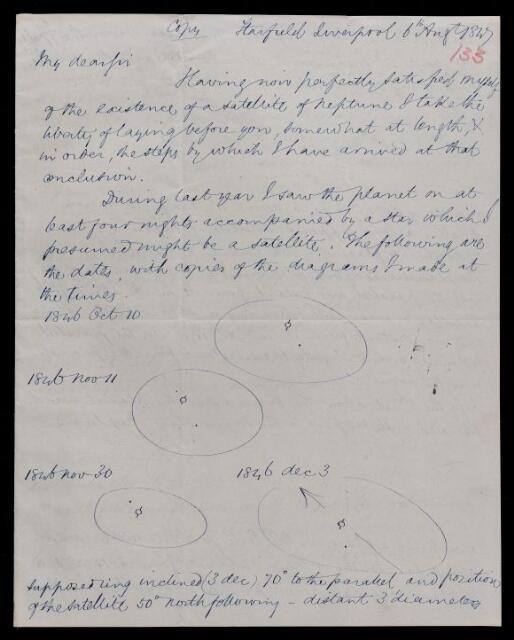 Copy Starfield Liverpool 6th Augt 1847
133
My dear Sir
Having now perfectly satisfied myself
of the existence of a satellite of Neptune I take the
liberty of laying before you, somewhat at length, &
in order, the steps by which I have arrived at that
conclusion.
During last year I saw the planet on at
least four nights accompanied by a star which I
presumed might be a satellite. The following are
the dates, with copies of the diagrams I made at
the times.
1846 Oct 10
1846 Nov 11
1846 Nov 30 1846 Dec 3
Supposed ring inclined (3 dec) 70° to the parallel and position
of the satellite 50° north following – distant 3 diameters